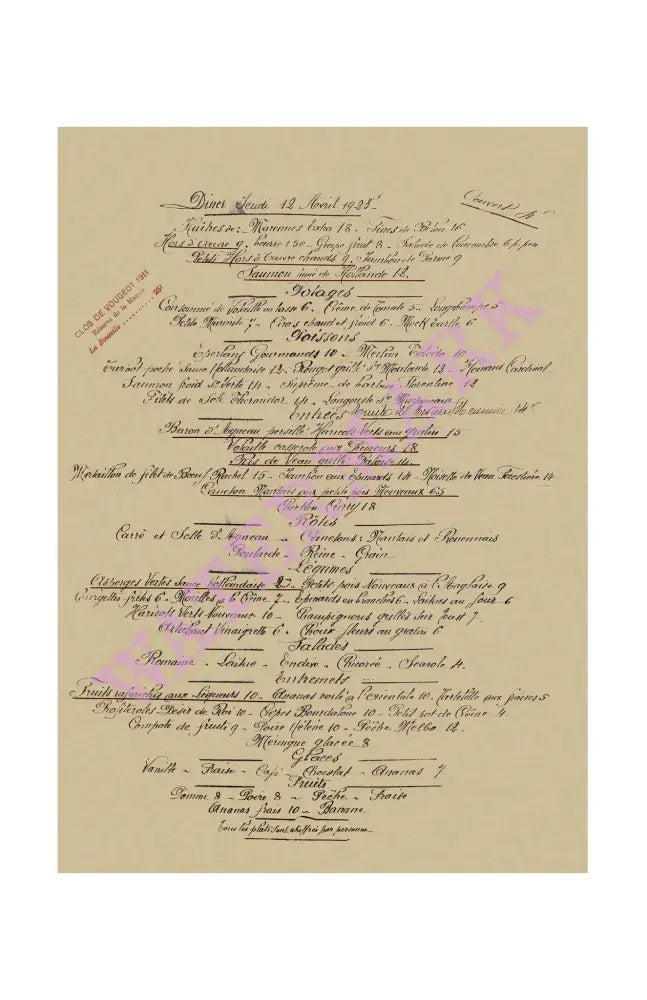 Dîner Jeudi 12 Avril 1923
Couvert
Huîtres de: Marennes Extra 18 - Fines de Belon 16
Hors d'œuvre 9, beurre 1.50 - Grape fruit 8 - Salade de Concombre 6 p. per.
Petits Hors d'Œuvre chauds 9, Jambon de Parme 9
Saumon fumé de Hollande 12
CLOS DE VOUGEOT 1911
Réserve de la Maison
La Bouteille 25f
Potages
Consommé de Volaille en tasse 6 - Crème de Tomate 5 - Longchamps 5
Petite Marmite 7 - chaud et froid 6 - Mock Turtle 6
Poissons
Éperlans Gourmands 10 - Merlan Tolédo 10
Turbot poché Sauce Hollandaise 12 - Rouget grillé Sce Moutarde 13 - Homard Cardinal
Saumon froid Sce Verte 14 - Suprême de barbue Florentine 12
Filets de Sole Thermidor 14 - Langouste Sce Mayonnaise
Entrées Truite de Meunière 14
Baron d'Agneau persillé Haricots Verts au gratin 15
Volaille casserole aux Primeurs 18
Ris de Veau grillé 14
Médaillon de filet de Bœuf Rachel 15 - Jambon aux Épinards 14 - Noisette de Veau Forestière 14
Caneton Nantais aux petits pois Nouveaux 65
18
Rôtis
Carré et Selle d'Agneau - Canetons: Nantais et Rouennais
Poularde - Reine - Grain
Légumes
Asperges Vertes Sauce Hollandaise - Petits pois Nouveaux à l'Anglaise 9
Courgettes frites 6 - Morilles à la Crème 7 - Épinards en branches 6 - Laitues au Jour 6
Haricots Verts Nouveaux 10 - Champignons grillés sur Toast 7
Artichaut Vinaigrette 6 - Choux fleurs au gratin 6
Salades
Romaine - Laitue - Endive - Chicorée - Scarole 4
Entremets
Fruits rafraîchis aux Liqueurs 10 - Ananas voilé à l'Orientale 10 - Tartelette aux poires 5
Profiteroles Désir de Roi 10 - Crêpes Bourdaloue 10 - Petit pot de Crème 4
Compote de fruits 9 - Poire Hélène 10 - Pêche Melba 12
Meringue glacée 8
Glaces
Vanille - Fraise - Café - Chocolat - Ananas 7
Fruits
Pomme 8 - Poire 8 - Pêche - Fraise
Ananas frais 10 - Banane
Tous les plats sont chiffrés par personne